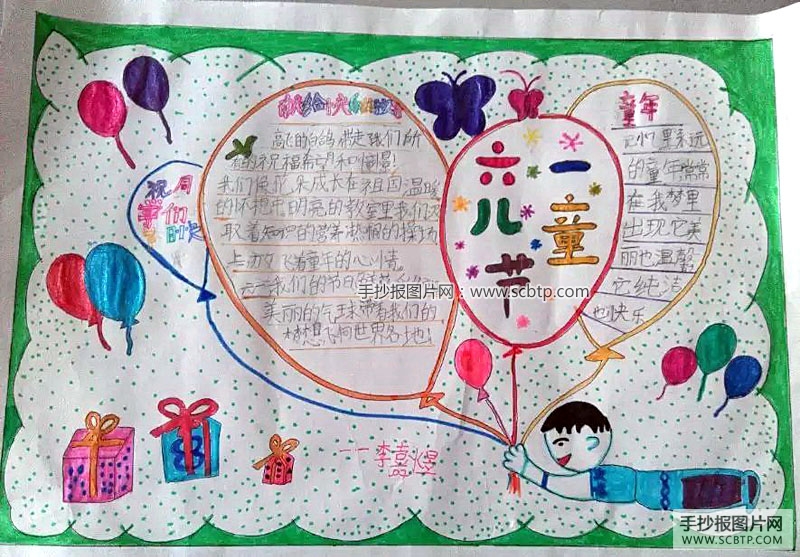 献给六一
高飞的白鸽带走我们所
有的祝福希望和憧憬!
我们像花朵成长在祖国温暖
的怀抱
明亮的教室里我们汲
取着知识的营养
热闹的操场
上放飞着童年的心情。
六一我们的节日
美丽的气球带着我们的
梦想飞向世界各地
祝同
学们
六一
儿童
节
童年
记忆里永远
的童年常常
在我梦里
出现它美
丽也温馨
它纯洁
也快乐
手抄报图片网:www.scbtp.com
手抄报图片网
WWW.SCBTP.COM